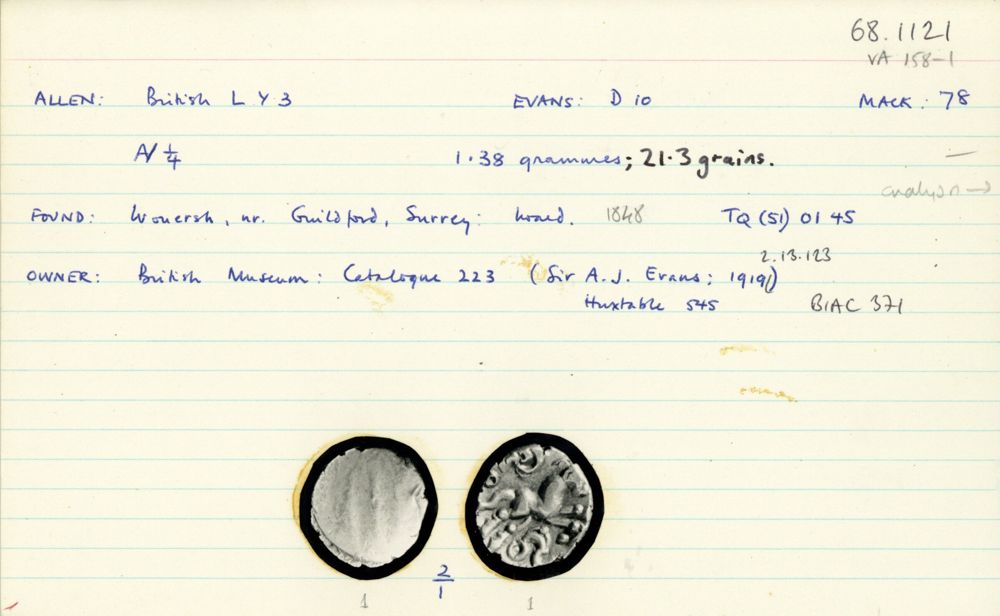 68.1121
VA 158-1
ALLEN: British L Y 3 EVANS: D 10 MACK: 78
A/ 1/4 1.38 grammes; 21.3 grains. —
analysis →
FOUND: Wonersh, nr. Guildford, Surrey: hoard. 1848 TQ (51) 01 45
2.13.123
OWNER: British Museum: Catalogue 223 (Sir A.J. Evans; 1919)
Huxtable 545 BIAC 371
2/1
1 1